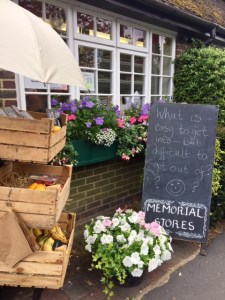 What is
easy to get
into - but
difficult to
get out of
?
?
MEMORIAL
STORES